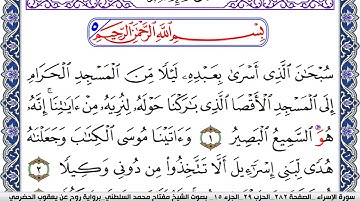 بِسْمِ ٱللَّهِ ٱلرَّحْمَٰنِ ٱلرَّحِيمِ
سُبْحَٰنَ ٱلَّذِىٓ أَسْرَىٰ بِعَبْدِهِۦ لَيْلًا مِّنَ ٱلْمَسْجِدِ ٱلْحَرَامِ
إِلَى ٱلْمَسْجِدِ ٱلْأَقْصَا ٱلَّذِى بَٰرَكْنَا حَوْلَهُۥ لِنُرِيَهُۥ مِنْ ءَايَٰتِنَآ إِنَّهُۥ
هُوَ ٱلسَّمِيعُ ٱلْبَصِيرُ ١ وَءَاتَيْنَا مُوسَى ٱلْكِتَٰبَ وَجَعَلْنَٰهُ
هُدًى لِّبَنِىٓ إِسْرَٰٓءِيلَ أَلَّا تَتَّخِذُوا۟ مِن دُونِى وَكِيلًا ٢
سورة الإسراء الصفحة ٢٨٢ الحزب ٢٩ الجزء ١٥ بصوت الشيخ مفتاح محمد السلطني برواية روح عن يعقوب الحضرمي